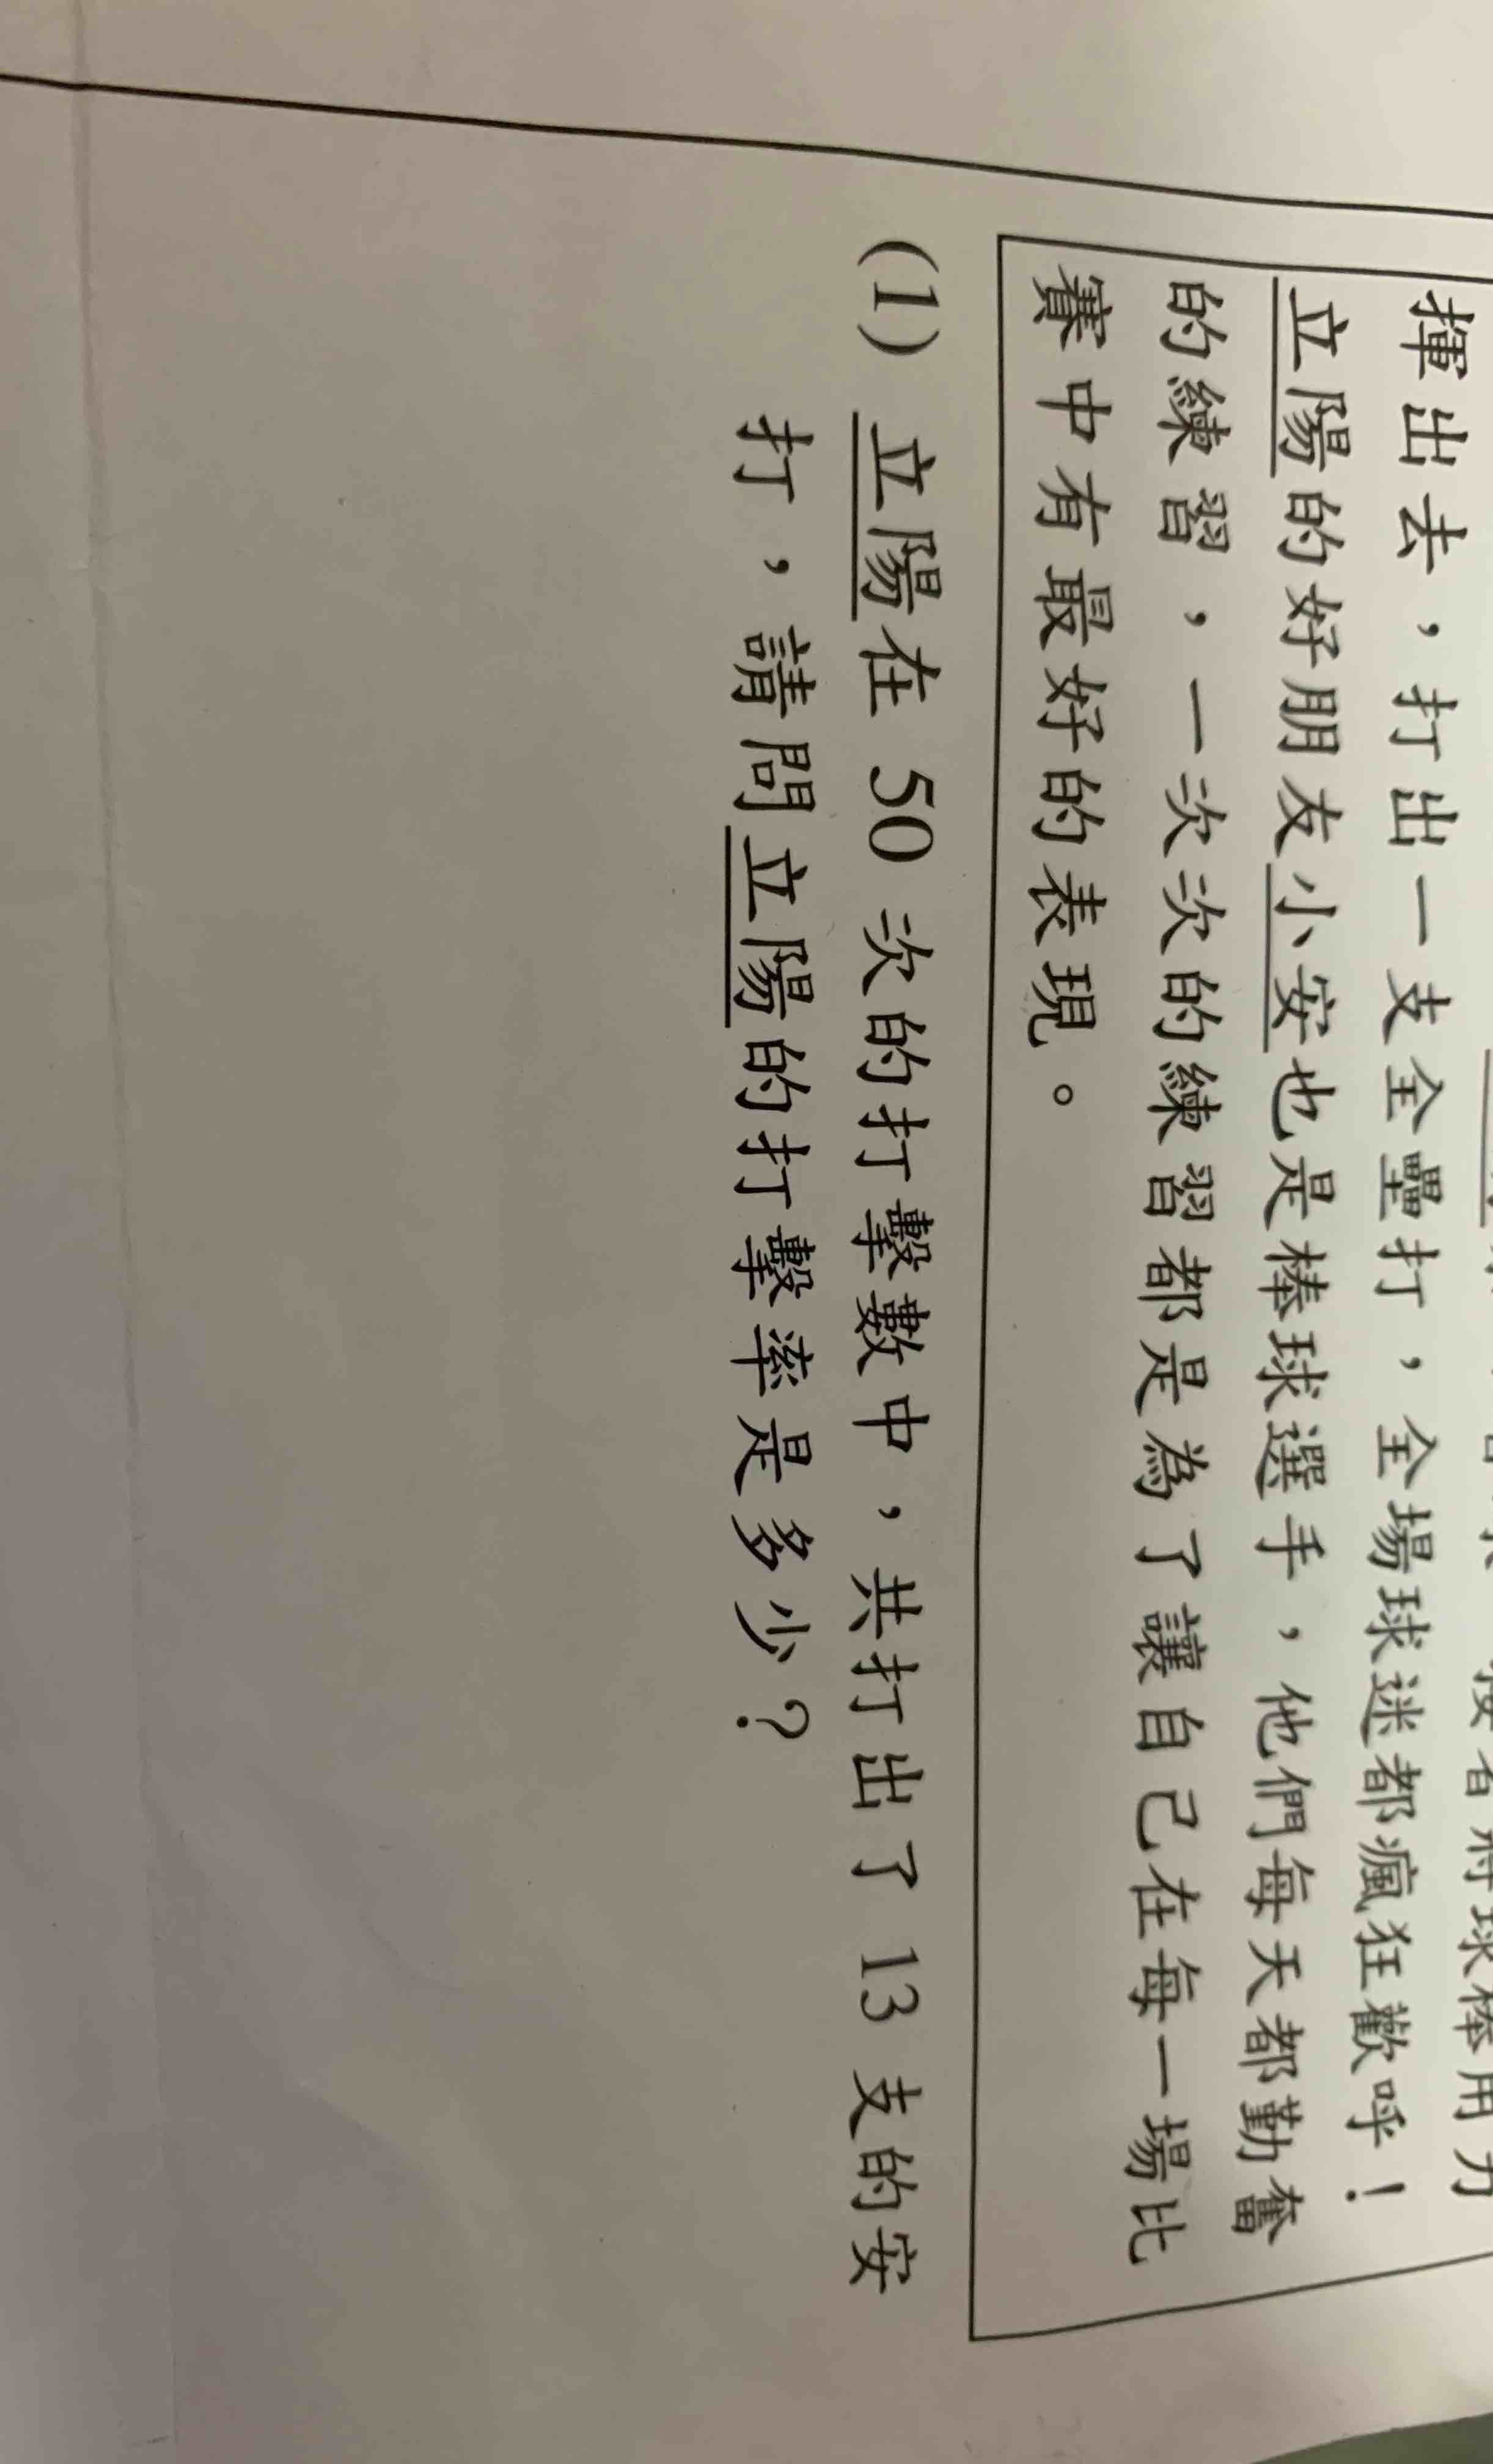 接著將球棒用力
揮出去，打出一支全壘打，全場球迷都瘋狂歡呼！
立陽的好朋友小安也是棒球選手，他們每天都勤奮
的練習，一次次的練習都是為了讓自己在每一場比
賽中有最好的表現。
(1) 立陽在 50 次的打擊數中，共打出了 13 支的安
打，請問立陽的打擊率是多少？